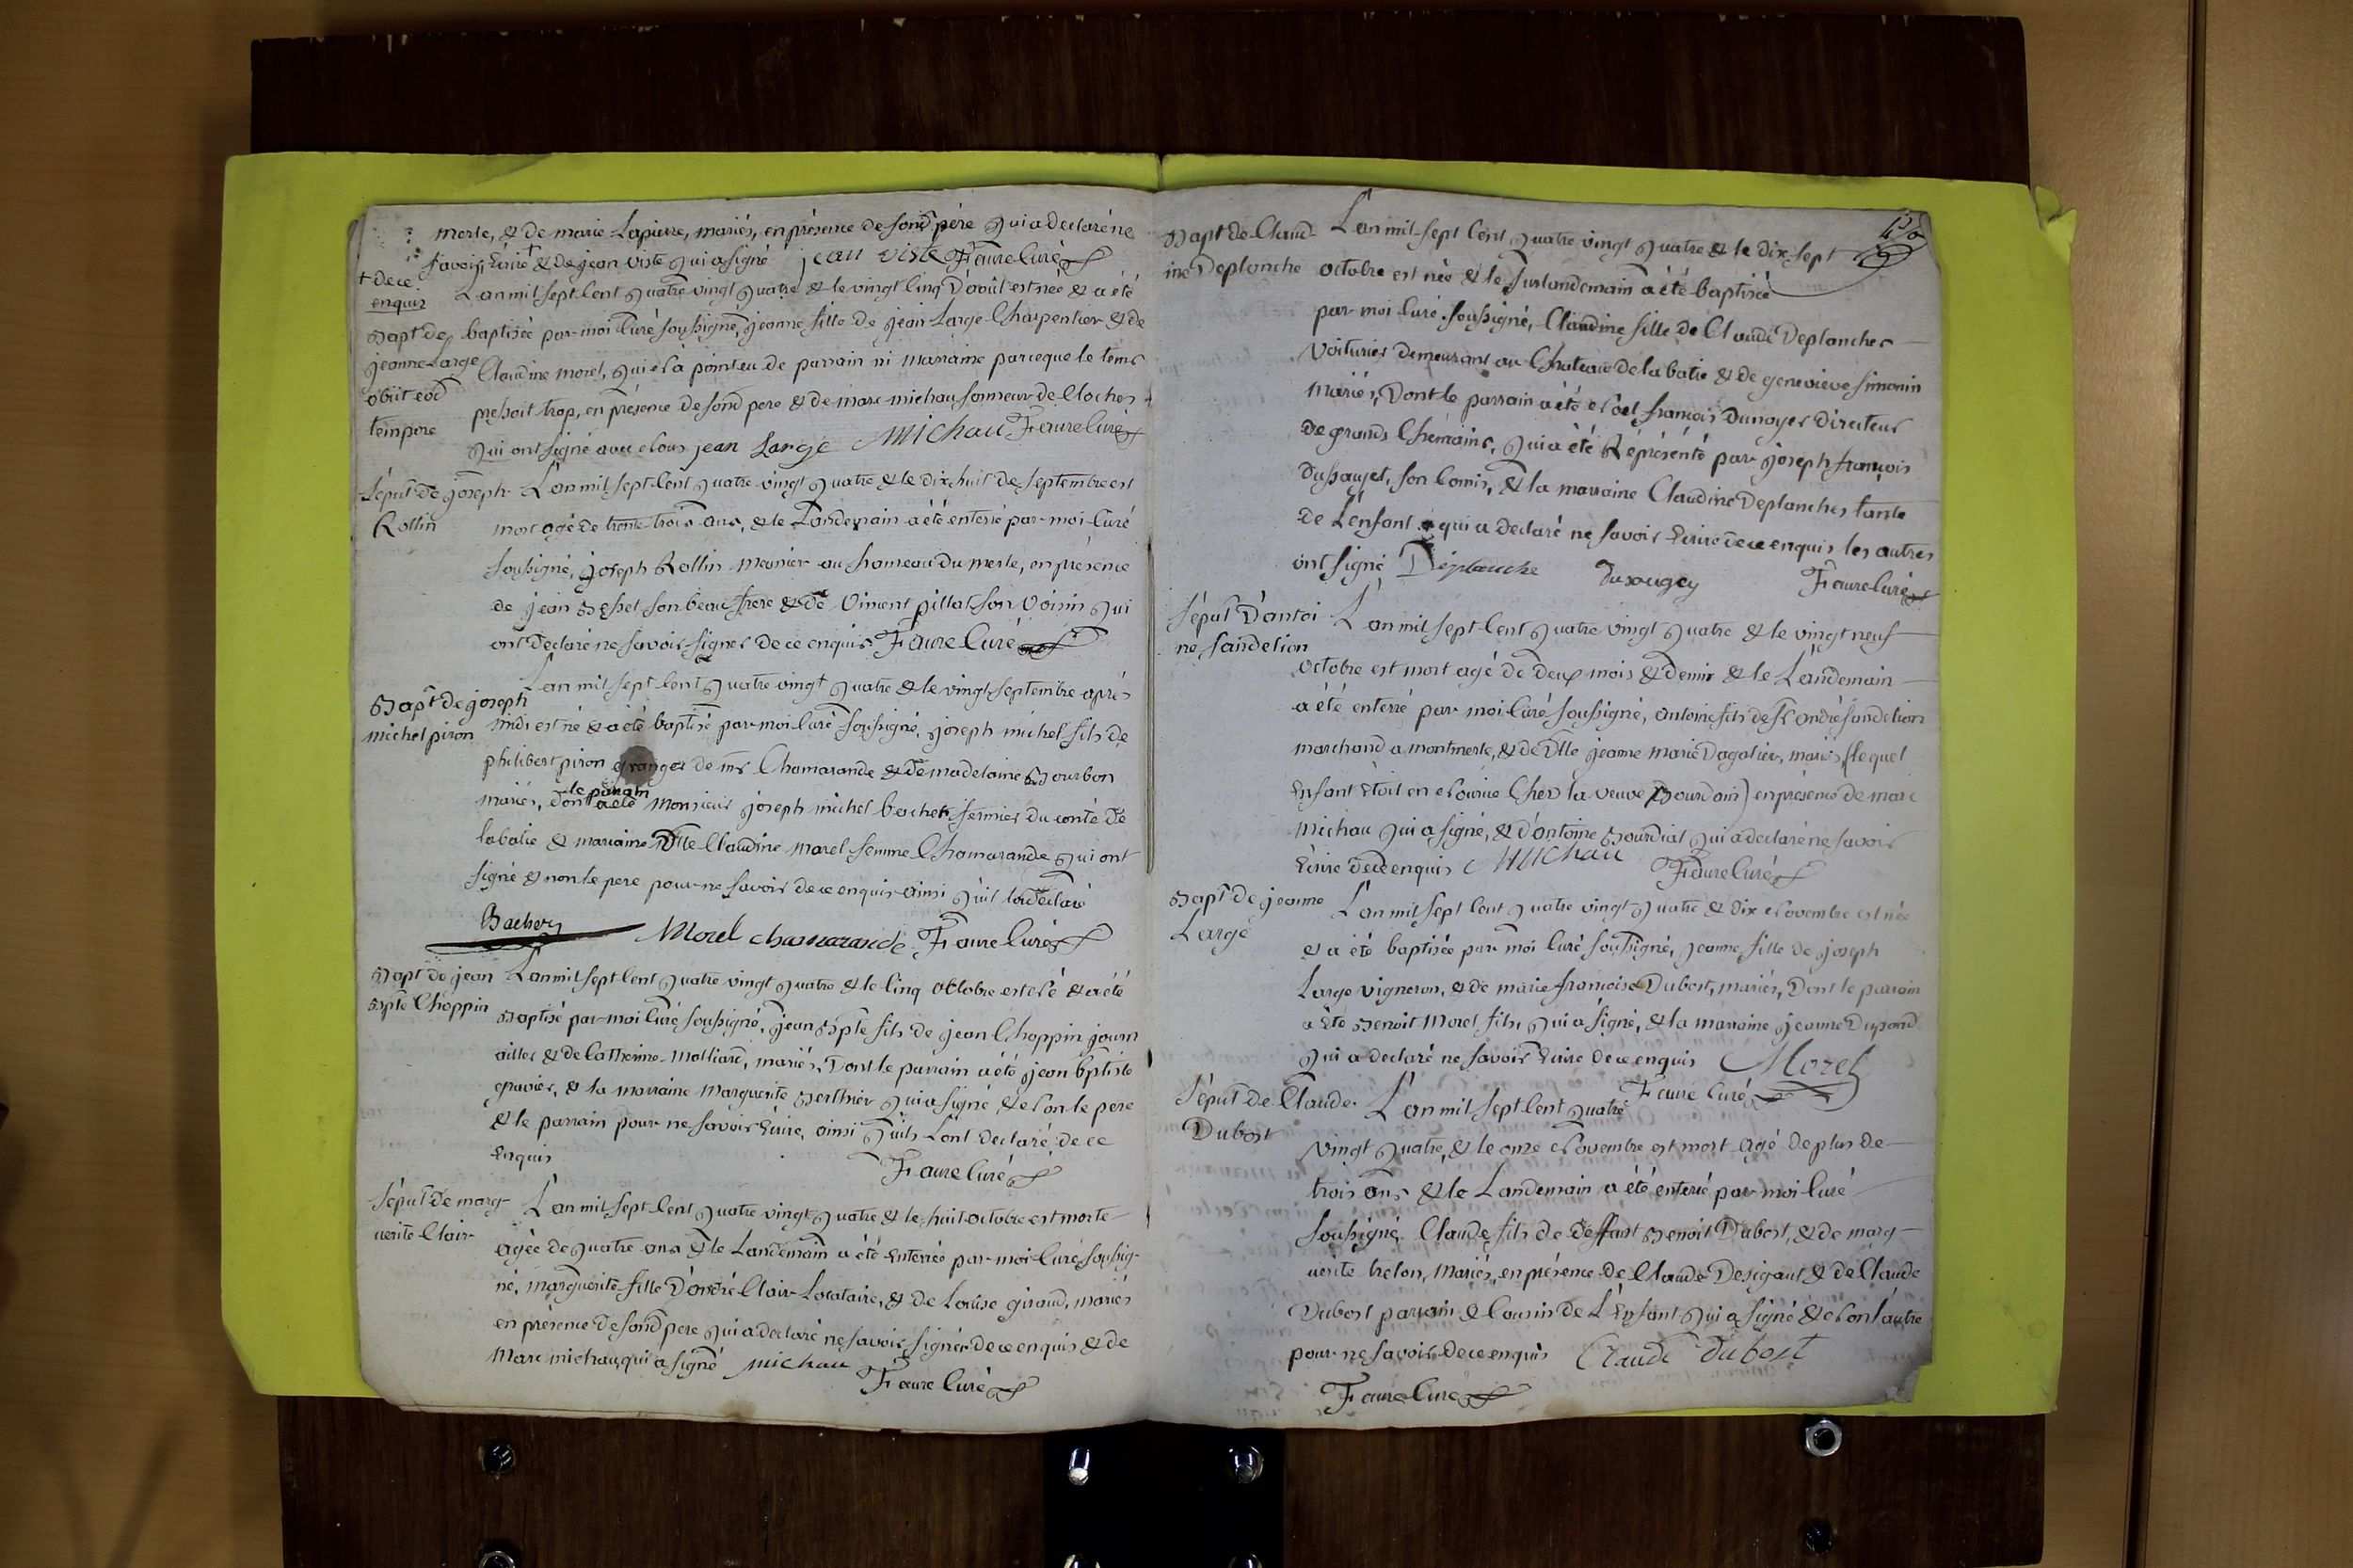 merle, & de marie Lapierre, mariés, en présence de sond. père qui a declaré ne
savoir Ecrire + & de jean viste qui a signé jean viste Faure Curé
+ de ce
enquis
L'an mil sept Cent quatre vingt quatre & le vingt Cinq D'août est née & a été
Bapt. de
jeanne Large
obiit eod
tempore
baptisée par moi Curé soussigné, jeanne fille de jean Large Charpentier & de
Claudine morel, qui n'a point eu de parrain ni marraine parceque le tems
pressoit trop, en présence de sond. pere & de marc michau sonneur de Cloches
qui ont signé avec Nous jean Large Michau Faure Curé
Sépult. de joseph
Rollin
L'an mil sept Cent quatre vingt quatre & le dix huit de septembre est
mort agé de trente trois ans, & le Landemain a été enterré par moi Curé
soussigné, joseph Rollin meunier au hameau du merle, en présence
de jean son beau frere & de Vincent pillat son Voisin qui
ont Declaré ne savoir signer de ce enquis Faure Curé
Bapt. de joseph
michel piron
L'an mil sept Cent quatre vingt quatre & le vingt septembre après
midi est né & a été baptisé par moi Curé soussigné, joseph michel fils de
philibert piron granger de mr Chamarande & de madelaine Bourbon
mariés, dont le parrain a été Monsieur joseph michel bachet fermier du comté de
labatie & marraine Dlle Claudine morel femme Chamarande qui ont
signé & non le pere pour ne savoir de ce enquis ainsi qu'il l'a declaré
Morel chamarande Faure Curé
Bapt. de jean
Bpte Choppin
L'an mil sept Cent quatre vingt quatre & le Cinq octobre est Né & a été
Baptisé par moi Curé soussigné, jean Bpte fils de jean Choppin journ
allier & de Catherine Molliard, mariés, Dont le parrain a été jean bptiste
gravier, & la marraine Marguerite Berthier qui a signé, & Non le pere
& le parrain pour ne savoir Ecrire, ainsi qu'ils L'ont declaré de ce
Enquis
Faure Curé
Sépult. de marg
uerite Clair
L'an mil sept Cent quatre vingt quatre & le huit octobre est morte
agée de quatre ans & le Landemain a été Enterrée par moi Curé soussig
né, marguerite fille D'andré Clair Locataire, & de Louise giraud, mariés
en présence de sond. pere qui a declaré ne savoir signer de ce enquis & de
Marc michau qui a signé michau
Faure Curé
Bapt. de Claud
ine Deplanche
L'an mil sept Cent quatre vingt quatre & le dix sept
octobre est née & le surlandemain a été baptisée
par moi Curé soussigné, Claudine fille de Claude Deplanches
Voiturier demeurant au Chateau de la batie & de genevieve simonin
Mariés, Dont le parrain a été Noel françois Dunoyer Directeur
De grands Chemains, qui a été Répresénté par joseph françois
Dussauget, son Comis, & la marraine Claudine Deplanches tante
de L'enfant qui a declaré ne savoir Ecrire de ce enquis les autres
ont signé Deplanche Dusougey Faure Curé
Sépult. D'antoi
ne sandelion
L'an mil sept Cent quatre vingt quatre & le vingt neuf
octobre est mort agé de deux mois & demi & le Landemain
a été enterré par moi Curé soussigné, antoine fils de sr andré sandelion
marchand a montmerle, & de Dlle jeanne marie Dagalier, mariés, (lequel
Enfant Etoit en Nourrice Chez la veuve Bourdain) en présence de marc
Michau qui a signé, & d'antoine Bourdiat qui a declaré ne savoir
Ecrire de ce enquis Michau Faure Curé
Bapt. de jeanne
Large
L'an mil sept Cent quatre vingt quatre & dix Novembre est née
& a été baptisée par moi Curé soussigné, jeanne fille de joseph
Large vigneron, & de marie françoise Dubost, mariés, Dont le parrain
a Eté Benoit Morel fils, qui a signé, & la marraine jeanne Dupond
qui a declaré ne savoir Ecrire de ce enquis Morel
Faure Curé
Sépult. de Claude
Dubost
L'an mil sept Cent quatre
vingt quatre, & le onze Novembre est mort agé de plus de
trois ans & le Landemain a été enterré par moi Curé
soussigné Claude fils de deffunt Benoit Dubost, & de marg
uerite trelon, Mariés, en présence de Claude Desigaut & de Claude
Dubost parrain & Cousin de L'Enfant qui a signé & Non l'autre
pour ne savoir de ce enquis Claude Dubost
Faure Curé